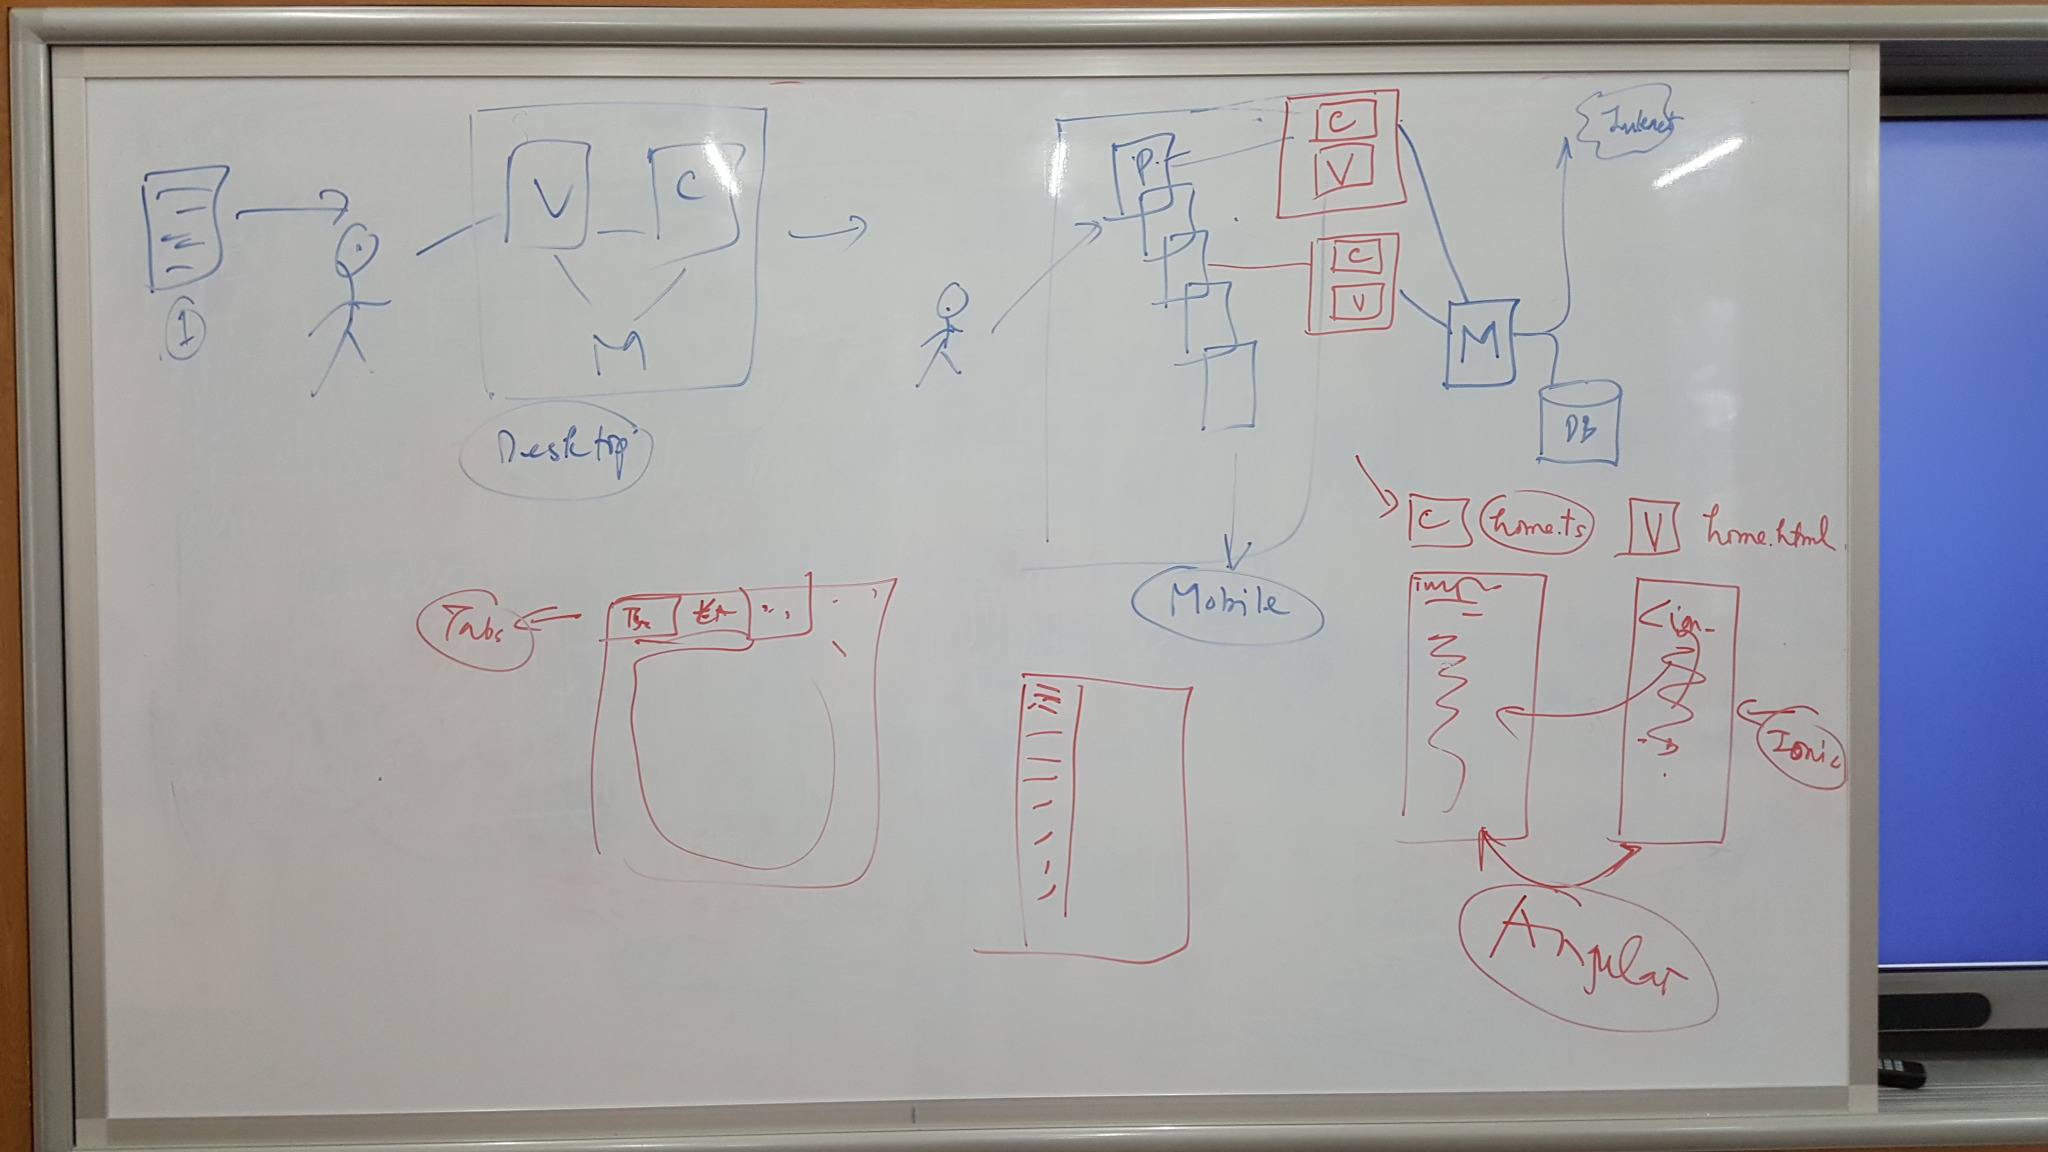 1
V
C
M
Desktop
P.
C
V
C
V
M
Internet
DB
Mobile
C
home.ts
V
home.html
Tabs
Ionic
Angular